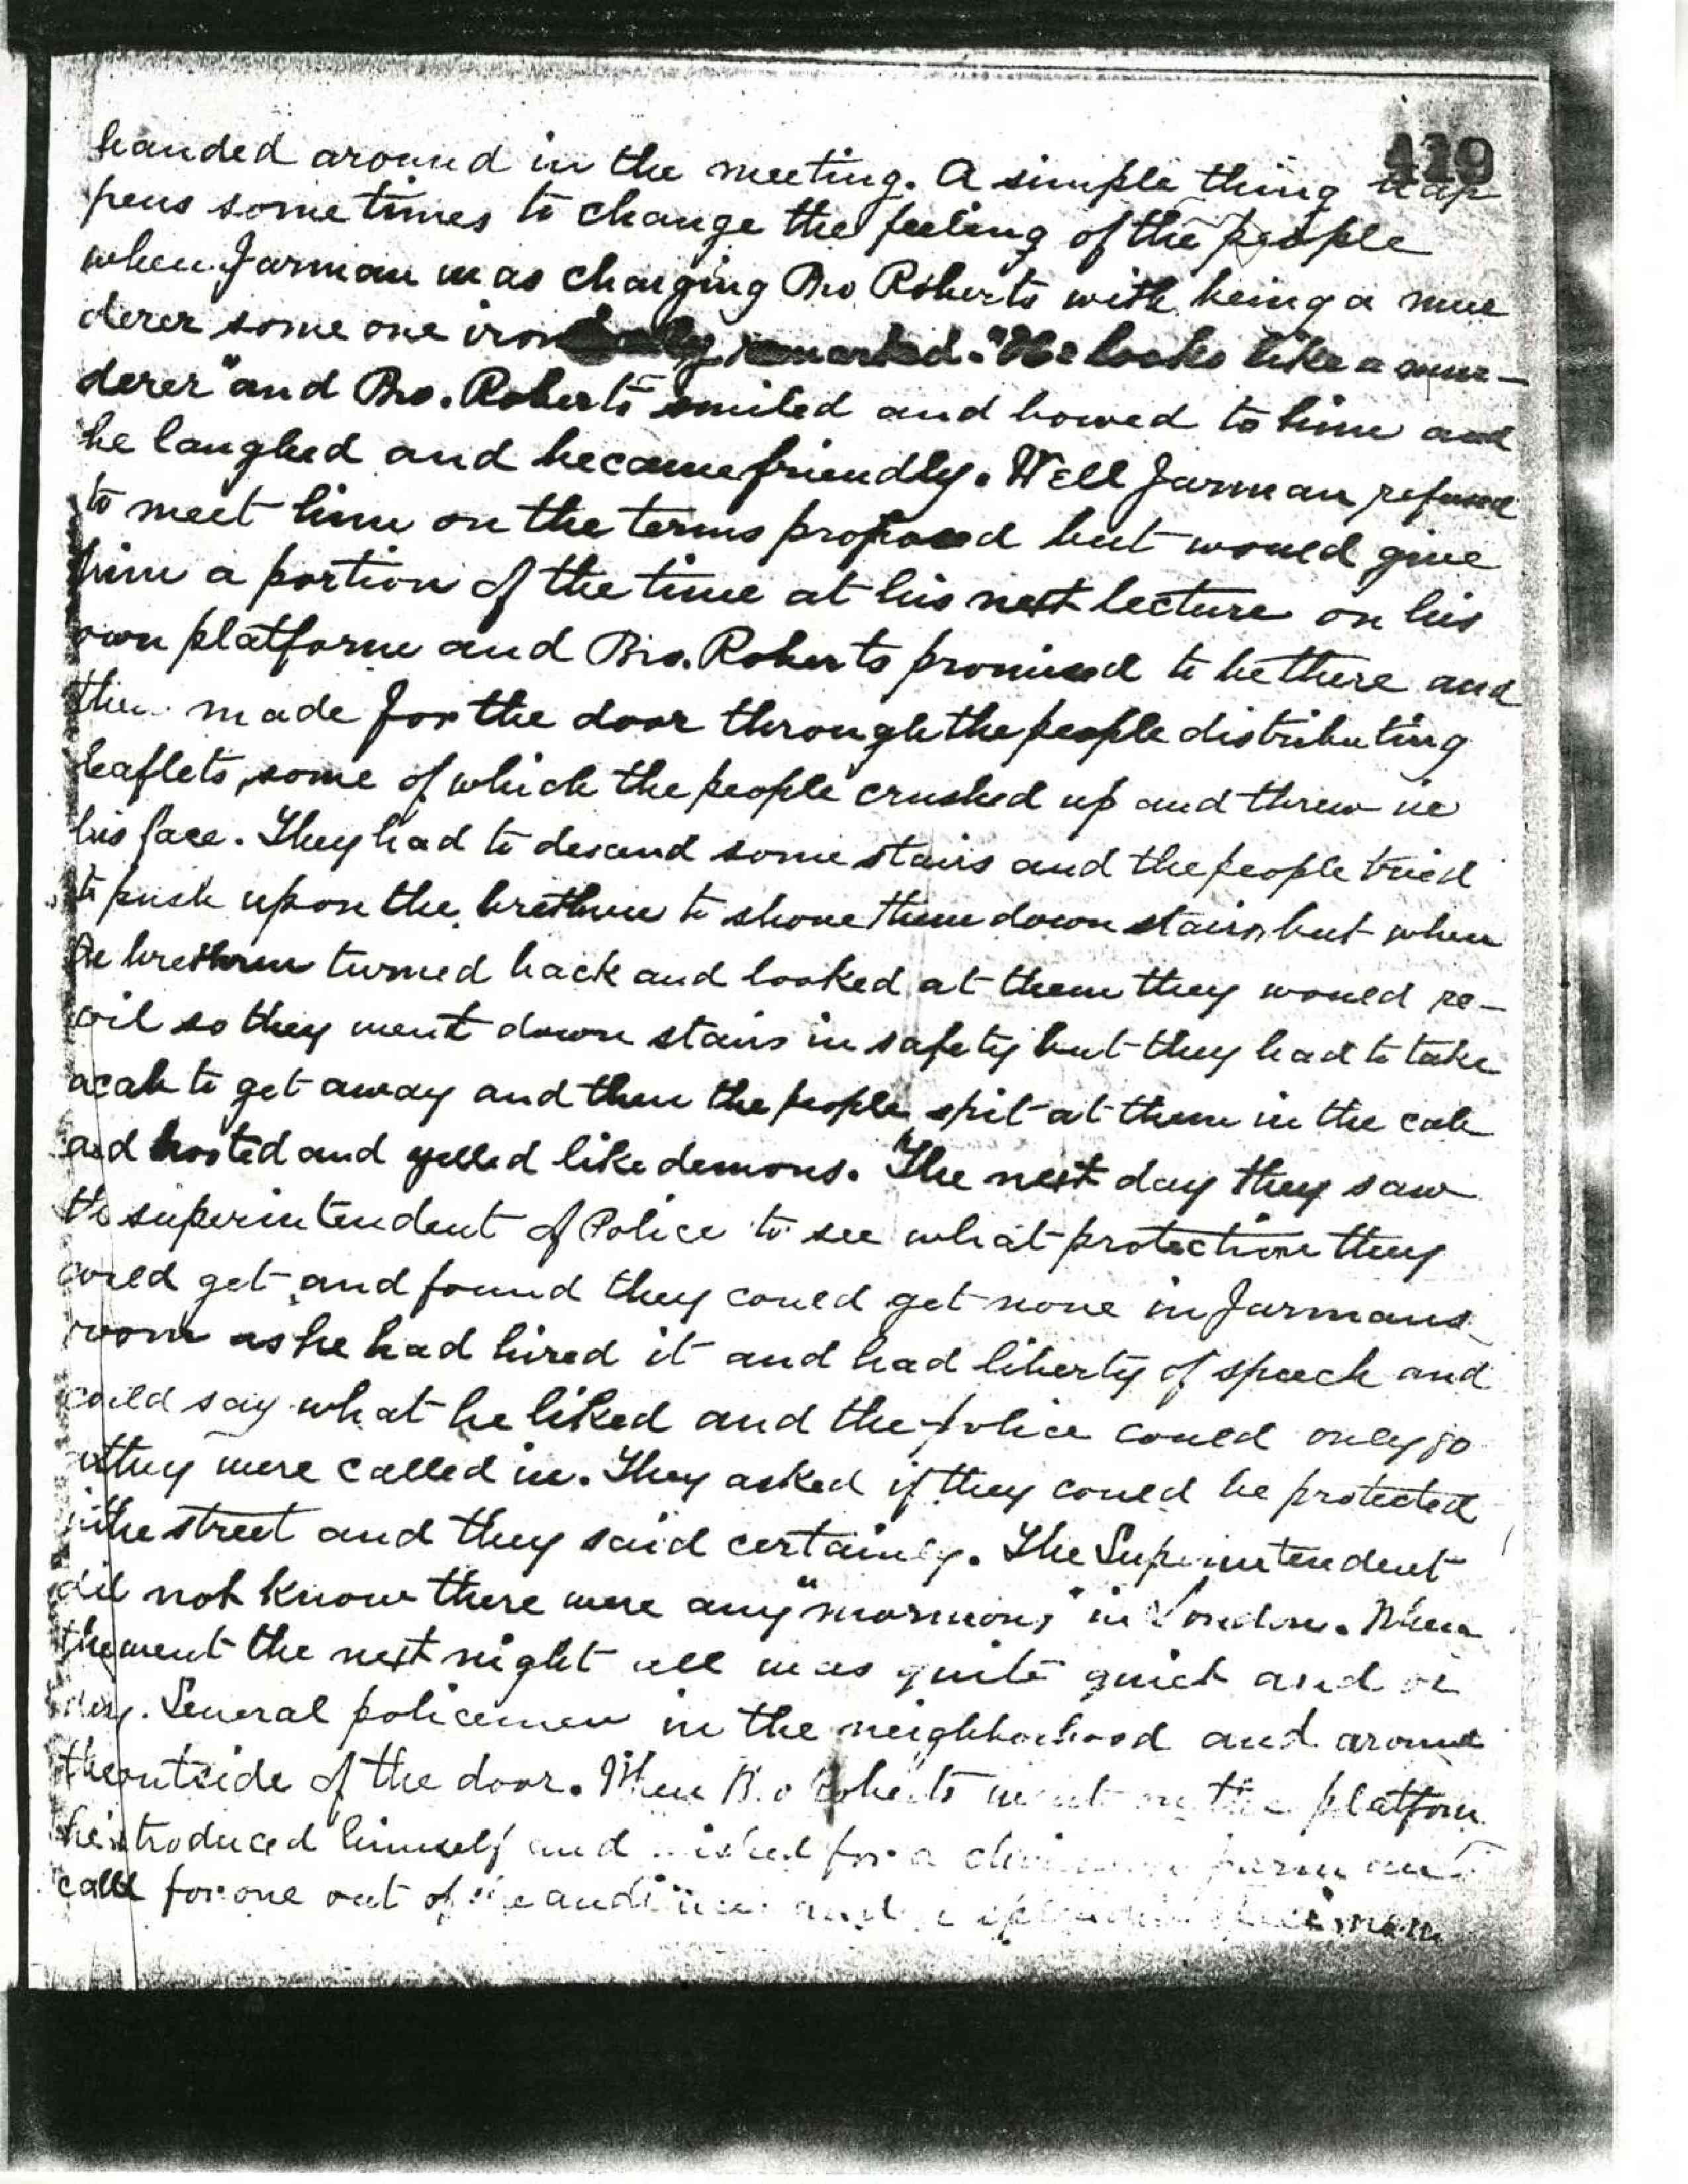 419
handed around in the meeting. A simple thing hap
pens sometimes to change the feeling of the people
when Jarman was charging Bro Roberts with being a mur
derer some one ironically remarked. "He looks like a mur-
derer" and Bro. Roberts smiled and bowed to him and
he laughed and became friendly. Well Jarman refused
to meet him on the terms proposed but would give
him a portion of the time at his next lecture on his
own platform and Bro. Roberts promised to be there and
then made for the door through the people distributing
leaflets, some of which the people crushed up and threw in
his face. They had to descend some stairs and the people tried
to push upon the brethren to shove them down stairs, but when
the brethren turned back and looked at them they would re-
coil so they went down stairs in safety but they had to take
a cab to get away and then the people spit at them in the cab
and hooted and yelled like demons. The next day they saw
the superintendent of Police to see what protection they
could get and found they could get none in Jarmans
room as he had hired it and had liberty of speech and
could say what he liked and the police could only go
if they were called in. They asked if they could be protected
in the street and they said certainly. The Superintendent
did not know there were any "mormons" in London. When
they went the next night all was quite quiet and or
derly. Several policemen in the neighborhood and around
the outside of the door. When Bro Roberts went on the platform
he introduced himself and asked for a chairman Jarman
called for one out of the audience and a splendid specimen